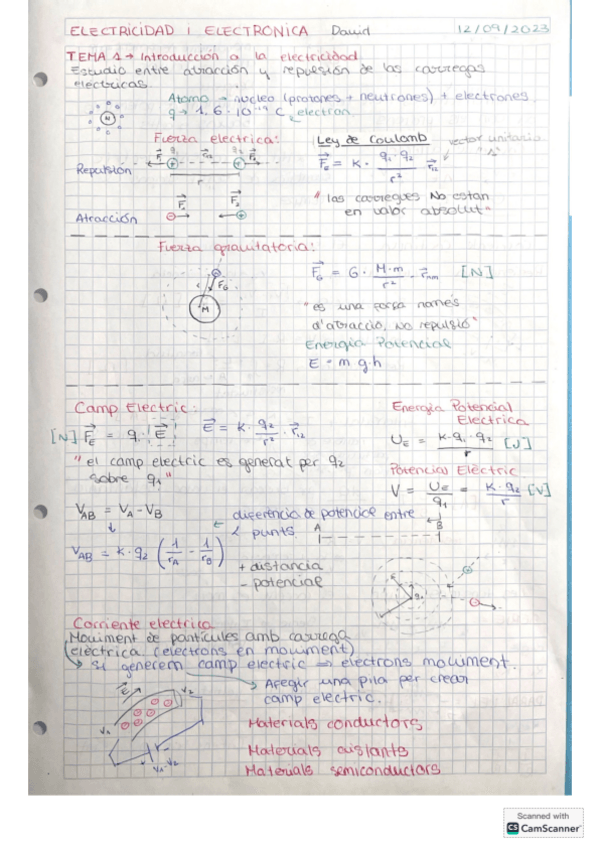 ELECTRICIDAD I ELECTRÓNICA David 12/09/2023
TEMA 1 → Introducción a la electricidad
Estudio entre atracción y repulsión de las carregas
electricas.
Atomo → núcleo (protones + neutrones) + electrones
q → 1,6·10⁻¹⁹ C electron
N
Fuerza electrica:
Ley de Coulomb
vector unitario
Repulsión
F_E = K · q₁·q₂/r² · r₁₂
r
Atracción
"las carregues No estan
en valor absolut"
Fuerza gravitatoria:
F_G = G · M·m/r² · r_nm [N]
F_G
M
"es una força només
d'atracció, no repulsió"
Energia Potencial
E = m g·h
Camp Electric:
[N] F_E = q₁·E E = K · q₂/r² · r₁₂
"el camp electric es generat per q₂
sobre q₁"
Energia Potencial
Electrica
U_E = K·q₁·q₂/r [J]
Potencial Electric
V = U_E/q₁ = K·q₂/r [V]
V_AB = V_A - V_B
diferencia de potencial entre
2 punts.
A B
V_AB = K·q₂ (1/r_A - 1/r_B)
+ distancia
- potencial
Corriente electrica
Moviment de particules amb carrega
electrica. (electrons en moviment)
↳ Si generem camp electric ⇒ electrons moviment.
↳ Afegir una pila per crear
camp electric.
E V₂
V₁
V₁-V₂
Materials conductors
Materials aislants
Materials semiconductors
Scanned with
CS CamScanner